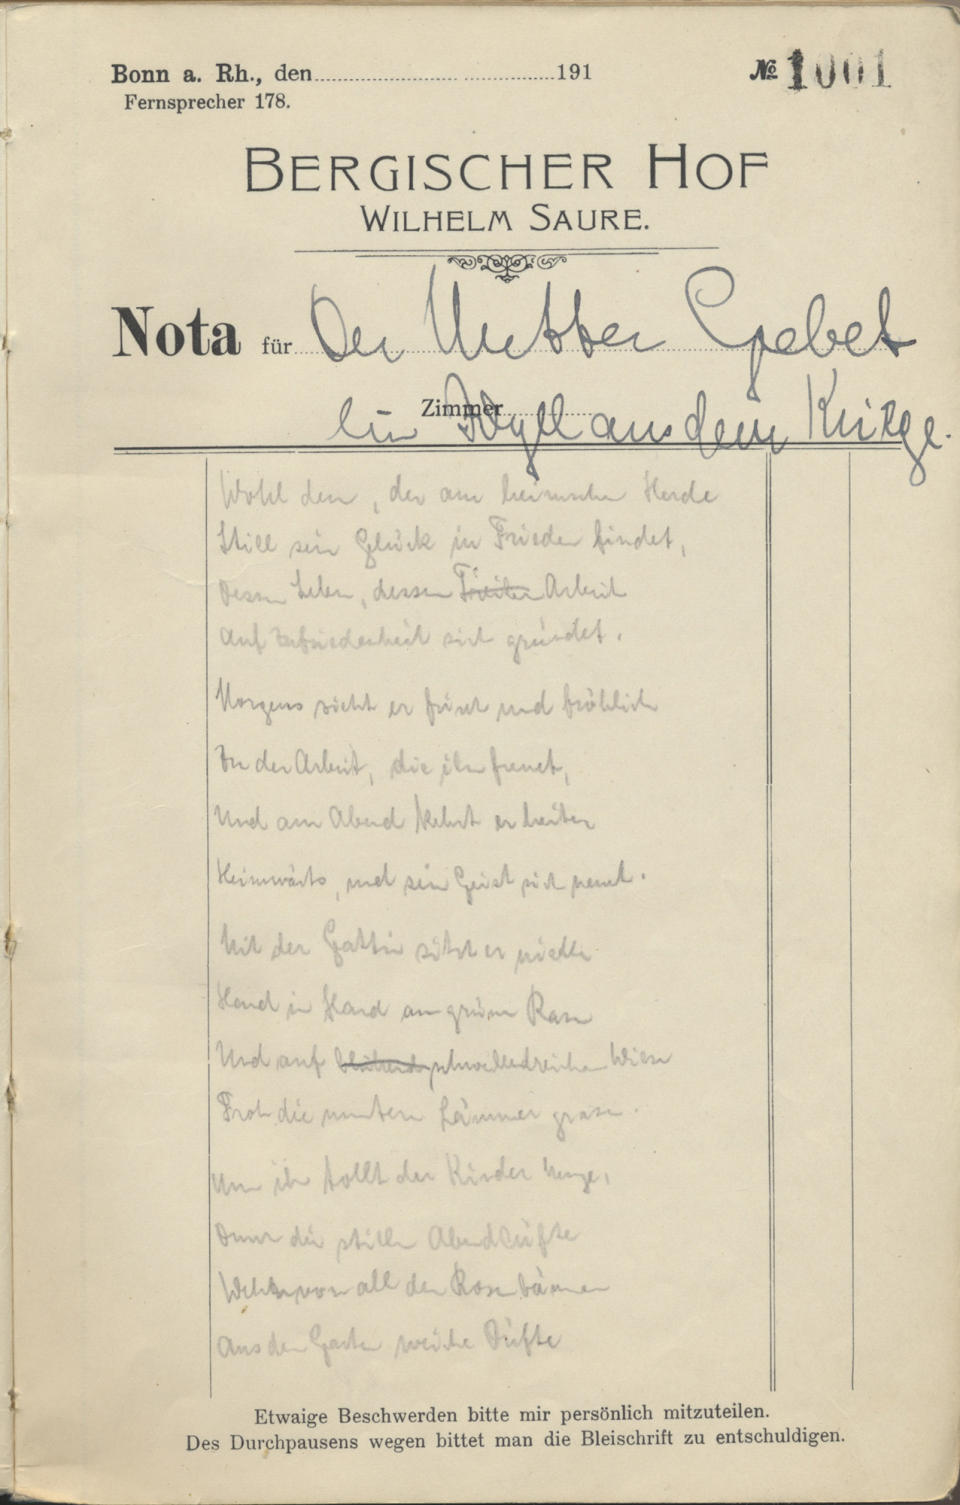 Bonn a. Rh., den 191
№ 1001
Fernsprecher 178.
BERGISCHER HOF
WILHELM SAURE.
Nota für Der Mutter Gebet
Zimmer
Ein Idyll aus dem Kriege.
Wohl dem, der am heimischen Herde
Still sein Glück in Frieden findet,
Dessen Leben, dessen Arbeit
Auf Zufriedenheit sich gründet.
Morgens zieht er frisch und fröhlich
Zu der Arbeit, die ihn freuet,
Und am Abend kehrt er heiter
Heimwärts, und sein Geist sich neuet.
Mit der Gattin sitzt er nieder
Hand in Hand am grünen Rasen
Und auf Wiesen
Froh die muntern Lämmer grasen.
Um ihn tollt der Kinder Menge,
Denn die stillen Abendlüfte
Wehen von all den Rosenbäumen
Aus dem Garten weiche Düfte
Etwaige Beschwerden bitte mir persönlich mitzuteilen.
Des Durchpausens wegen bittet man die Bleischrift zu entschuldigen.